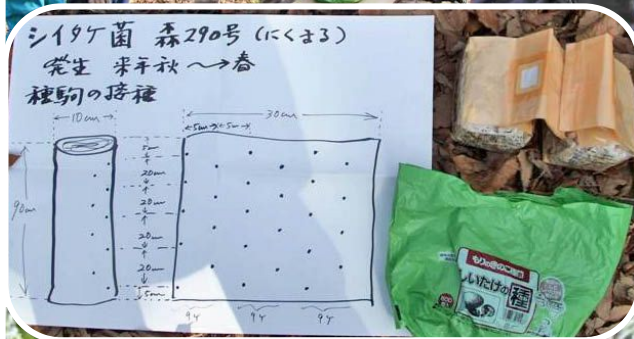 シイタケ菌 森290号 (にくまる)
発生 来年秋〜→春
種駒の接種
10cm
90cm
5cm
20cm
20cm
20cm
20cm
5cm
30cm
5cm
5cm
9ケ
9ケ
9ケ
もりのきのこ種菌
しいたけの種